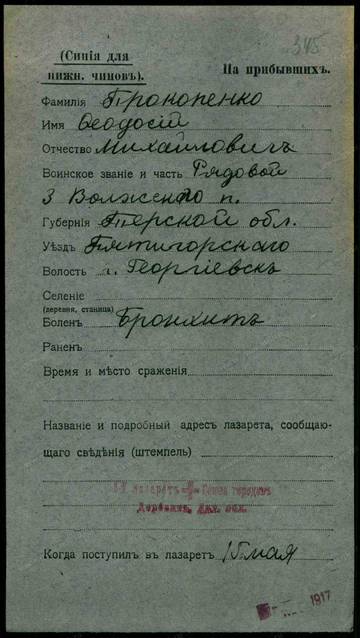 345
(Синія для
нижн. чиновъ).
На прибывшихъ.
Фамилія Прокопенко
Имя Ѳеодосій
Отчество Михайловичъ
Воинское званіе и часть Рядовой
3 п.
Губернія Терской обл.
Уѣздъ Пятигорскаго
Волость г. Георгіевскъ
Селеніе
(деревня, станица)
Боленъ Бронхитъ
Раненъ
Время и мѣсто сраженія
Названіе и подробный адресъ лазарета, сообщаю-
щаго свѣдѣнія (штемпель)
лазаретъ Союза городовъ
Дербентъ, Даг. обл.
Когда поступилъ въ лазаретъ 15 мая
1917